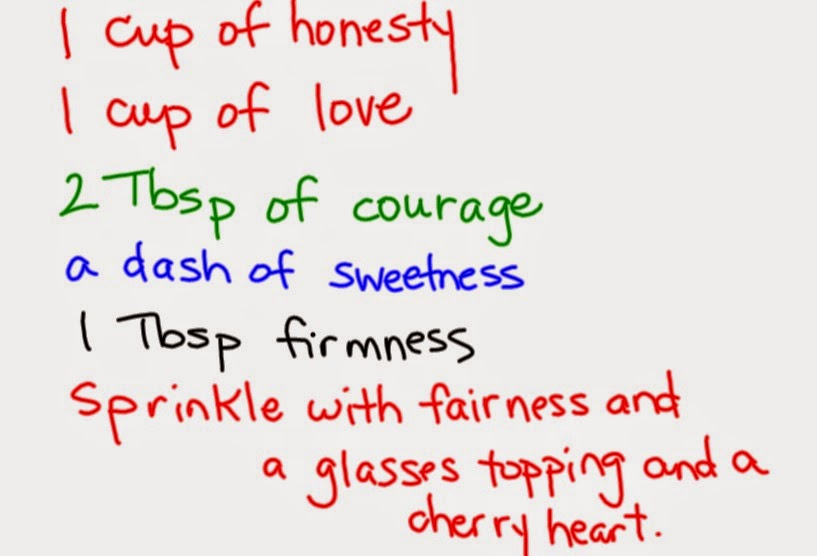 1 cup of honesty
1 cup of love
2 Tbsp of courage
a dash of sweetness
1 Tbsp firmness
Sprinkle with fairness and
a glasses topping and a
cherry heart.